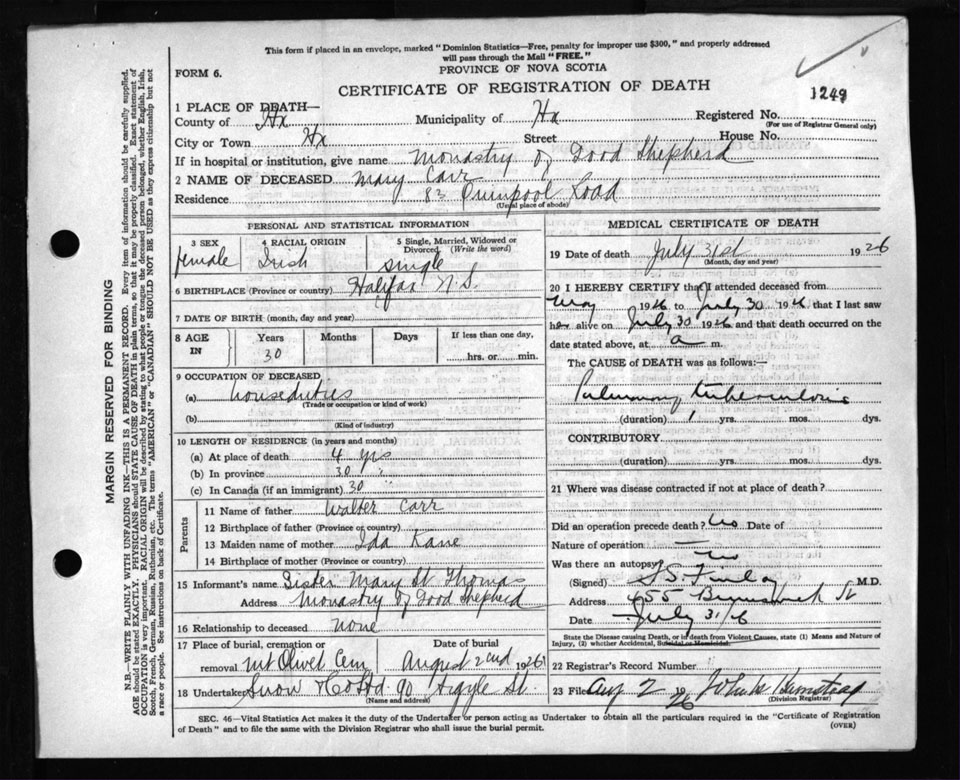 This form if placed in an envelope, marked "Dominion Statistics—Free, penalty for improper use $300," and properly addressed
will pass through the Mail "FREE."
PROVINCE OF NOVA SCOTIA
FORM 6.
CERTIFICATE OF REGISTRATION OF DEATH
1249
1 PLACE OF DEATH—
County of Hx Municipality of Hx Registered No.
(For use of Registrar General only)
City or Town Hx Street House No.
If in hospital or institution, give name Monastry of Good Shepherd
2 NAME OF DECEASED Mary Carr
Residence 83 Quinpool Road
(Usual place of abode)
MARGIN RESERVED FOR BINDING
N.B.—WRITE PLAINLY WITH UNFADING INK—THIS IS A PERMANENT RECORD. Every item of information should be carefully supplied.
AGE should be stated EXACTLY. PHYSICIANS should STATE CAUSE OF DEATH in plain terms, so that it may be properly classified. Exact statement of
OCCUPATION is very important. RACIAL ORIGIN will be described by stating to what people or tongue the deceased person belonged, whether English, Irish,
Scotch, French, German, Russian, Ruthenian, etc. The terms "AMERICAN" or "CANADIAN" SHOULD NOT BE USED as they express citizenship but not
a race or people. See instructions on back of Certificate.
PERSONAL AND STATISTICAL INFORMATION
3 SEX
female
4 RACIAL ORIGIN
Irish
5 Single, Married, Widowed or
Divorced (Write the word)
single
6 BIRTHPLACE (Province or country) Halifax N.S.
7 DATE OF BIRTH (month, day and year)
8 AGE IN
Years
30
Months
Days
If less than one day,
hrs. or min.
9 OCCUPATION OF DECEASED
(a) houseduties
(Trade or occupation or kind of work)
(b)
(Kind of industry)
10 LENGTH OF RESIDENCE (in years and months)
(a) At place of death 4 yrs
(b) In province 30 "
(c) In Canada (if an immigrant) 30 "
Parents
11 Name of father Walter Carr
12 Birthplace of father (Province or country)
13 Maiden name of mother Ida Kane
14 Birthplace of mother (Province or country)
15 Informant's name Sister Mary St Thomas
Address Monastry of Good Shepherd
16 Relationship to deceased none
17 Place of burial, cremation or Date of burial
removal Mt Olivet Cem August 2nd 1926
18 Undertaker Snow & Co Ltd 90 Argyle St.
(Name and address)
MEDICAL CERTIFICATE OF DEATH
19 Date of death July 31st 1926
(Month, day and year)
20 I HEREBY CERTIFY that I attended deceased from
May 1926 to July 30 1926 that I last saw
her alive on July 30 1926 and that death occurred on the
date stated above, at a m.
The CAUSE OF DEATH was as follows:—
Pulmonary tuberculosis
(duration) 1 yrs. mos. dys.
CONTRIBUTORY
(duration) yrs. mos. dys.
21 Where was disease contracted if not at place of death?
Did an operation precede death? No Date of
Nature of operation —
Was there an autopsy? No
(Signed) Finlay M.D.
Address 455 Brunswick St
Date July 31/26
State the Disease causing Death, or in death from Violent Causes, state (1) Means and Nature of
Injury, (2) whether Accidental, Suicidal or Homicidal.
22 Registrar's Record Number
23 Filed Aug 2 26
(Division Registrar)
SEC. 46—Vital Statistics Act makes it the duty of the Undertaker or person acting as Undertaker to obtain all the particulars required in the "Certificate of Registration
of Death" and to file the same with the Division Registrar who shall issue the burial permit. (OVER)